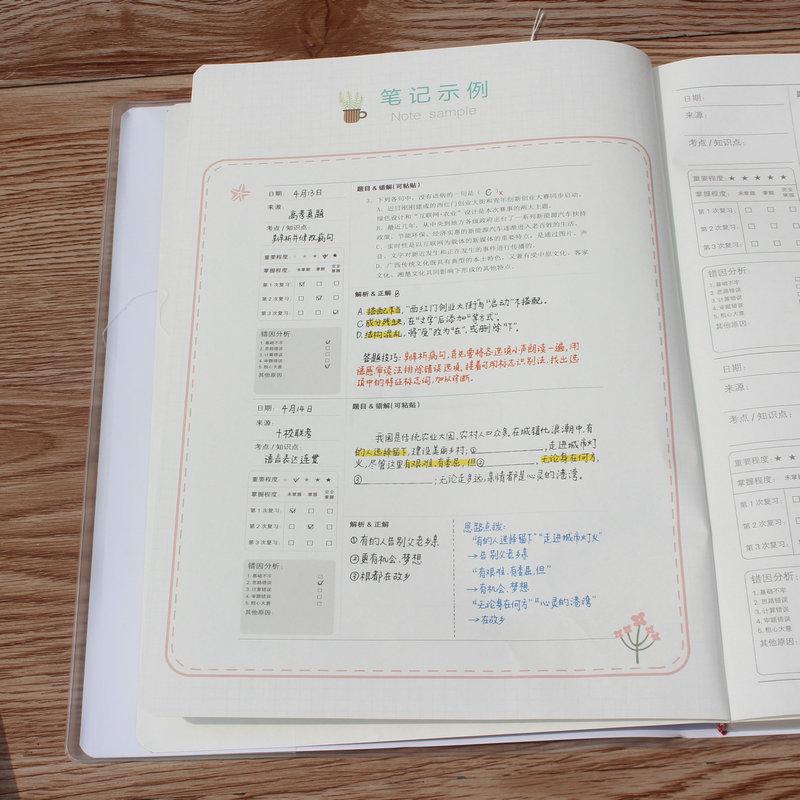 笔记示例
Note sample
日期: 4月13日
来源:
高考真题
考点 / 知识点:
辨析并修改病句
重要程度: ★ ★ ★ ★ ★
掌握程度: 未掌握 掌握 完全掌握
第 1 次复习:
第 2 次复习:
第 3 次复习:
错因分析:
1. 基础不牢
2. 思路错误
3. 计算错误
4. 审题错误
5. 粗心大意
其他原因:
题目 & 错解(可粘贴)
3. 下列各句中，没有语病的一句是 ( C ) x
A. 近日刚刚建成的西红门创业大街和青年创新创业大赛同步启动，
绿色设计和“互联网+农业”设计是本次赛事的两大主题。
B. 最近几年，从中央到地方各级政府出台了一系列新能源汽车扶持
政策，节能环保、经济实惠的新能源汽车逐渐进入老百姓的生活。
C. 实时性是以互联网为载体的新媒体的重要特点，是通过图片、声
音、文字对新近发生和正在发生的事件进行传播的。
D. 广西传统文化既具有典型的本土特色，又兼有受中原文化、客家
文化、湘楚文化共同影响下形成的其他特点。
解析 & 正解 B
A. 搭配不当，“西红门创业大街”与“启动”不搭配。
C. 成分残缺，在“文字”后添加“等方式”。
D. 结构混乱，将“受”改为“在”，或删除“下”。
答题技巧: 辨析病句，首先要将各选项小声朗读一遍，用
语感审读法排除错误选项，接着可用标志识别法，找出选
项中的特征标志词，加以诊断。
日期: 4月14日
来源:
十校联考
考点 / 知识点:
语言表达连贯
重要程度: ★ ★ ★ ★
掌握程度: 未掌握 掌握 完全掌握
第 1 次复习:
第 2 次复习:
第 3 次复习:
错因分析:
1. 基础不牢
2. 思路错误
3. 计算错误
4. 审题错误
5. 粗心大意
其他原因:
题目 & 错解(可粘贴)
我国是传统农业大国，农村人口众多，在城镇化浪潮中，有
的人选择留下，建设美丽乡村；①________，走进城市灯
火，尽管这里有艰难，有委屈，但②________，无论身在何方，
③________；无论走多远，亲情都是心灵的港湾。
解析 & 正解
①有的人告别父老乡亲
②更有机会、梦想
③根都在故乡
思路点拨:
“有的人选择留下”“走进城市灯火”
→告别父老乡亲
“有艰难，有委屈，但”
→有机会、梦想
“无论身在何方”“心灵的港湾”
→在故乡
日期:
来源:
考点 / 知识点:
重要程度: ★ ★ ★ ★ ★
掌握程度: 未掌握 掌握
第 1 次复习:
第 2 次复习:
第 3 次复习:
错因分析:
1. 基础不牢
2. 思路错误
3. 计算错误
4. 审题错误
日期:
来源:
考点 / 知识点:
重要程度: ★ ★
掌握程度: 未掌握
第 1 次复习:
第 2 次复习:
第 3 次复习:
错因分析:
1. 基础不牢
2. 思路错误
3. 计算错误
4. 审题错误
5. 粗心大意
其他原因: